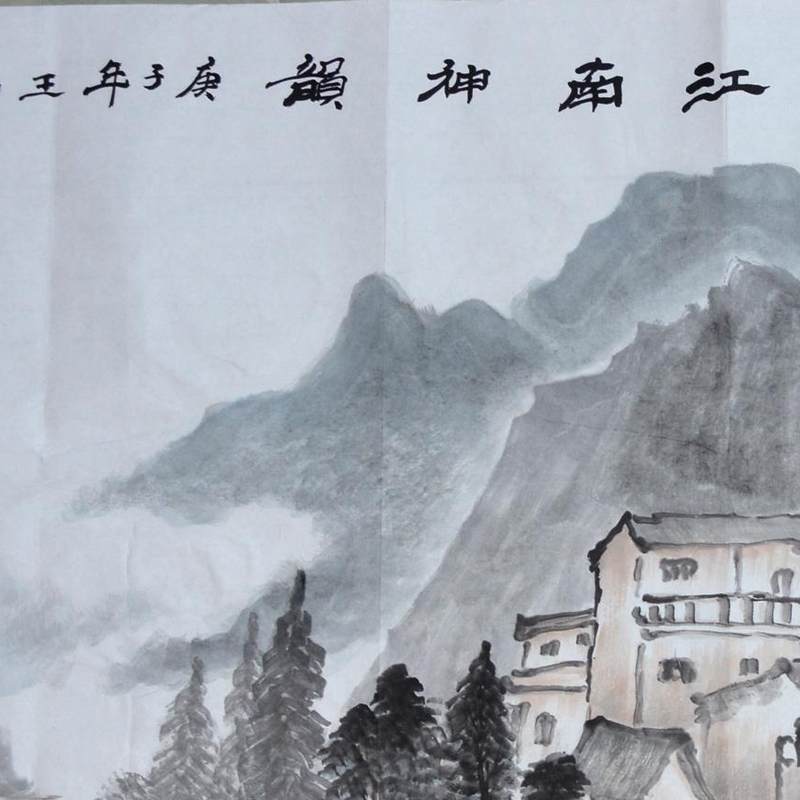 江南神韻 庚子年 王